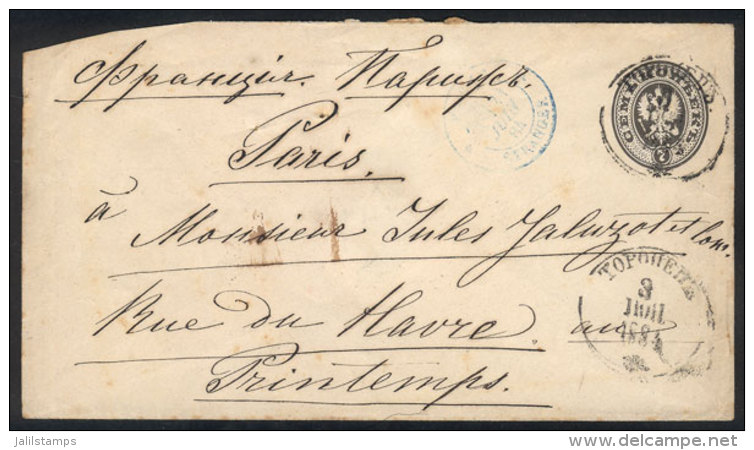 Франція. Парижъ.
Paris.
à
Monsieur Jules Jaluzot et Com.
Rue du Havre. au
Printemps.
ETRANGER
СЕМЬ КОПѢЕКЪ
7
ТОРОПЕЦЪ
3
1884
jalilstamps
www.delcampe.net